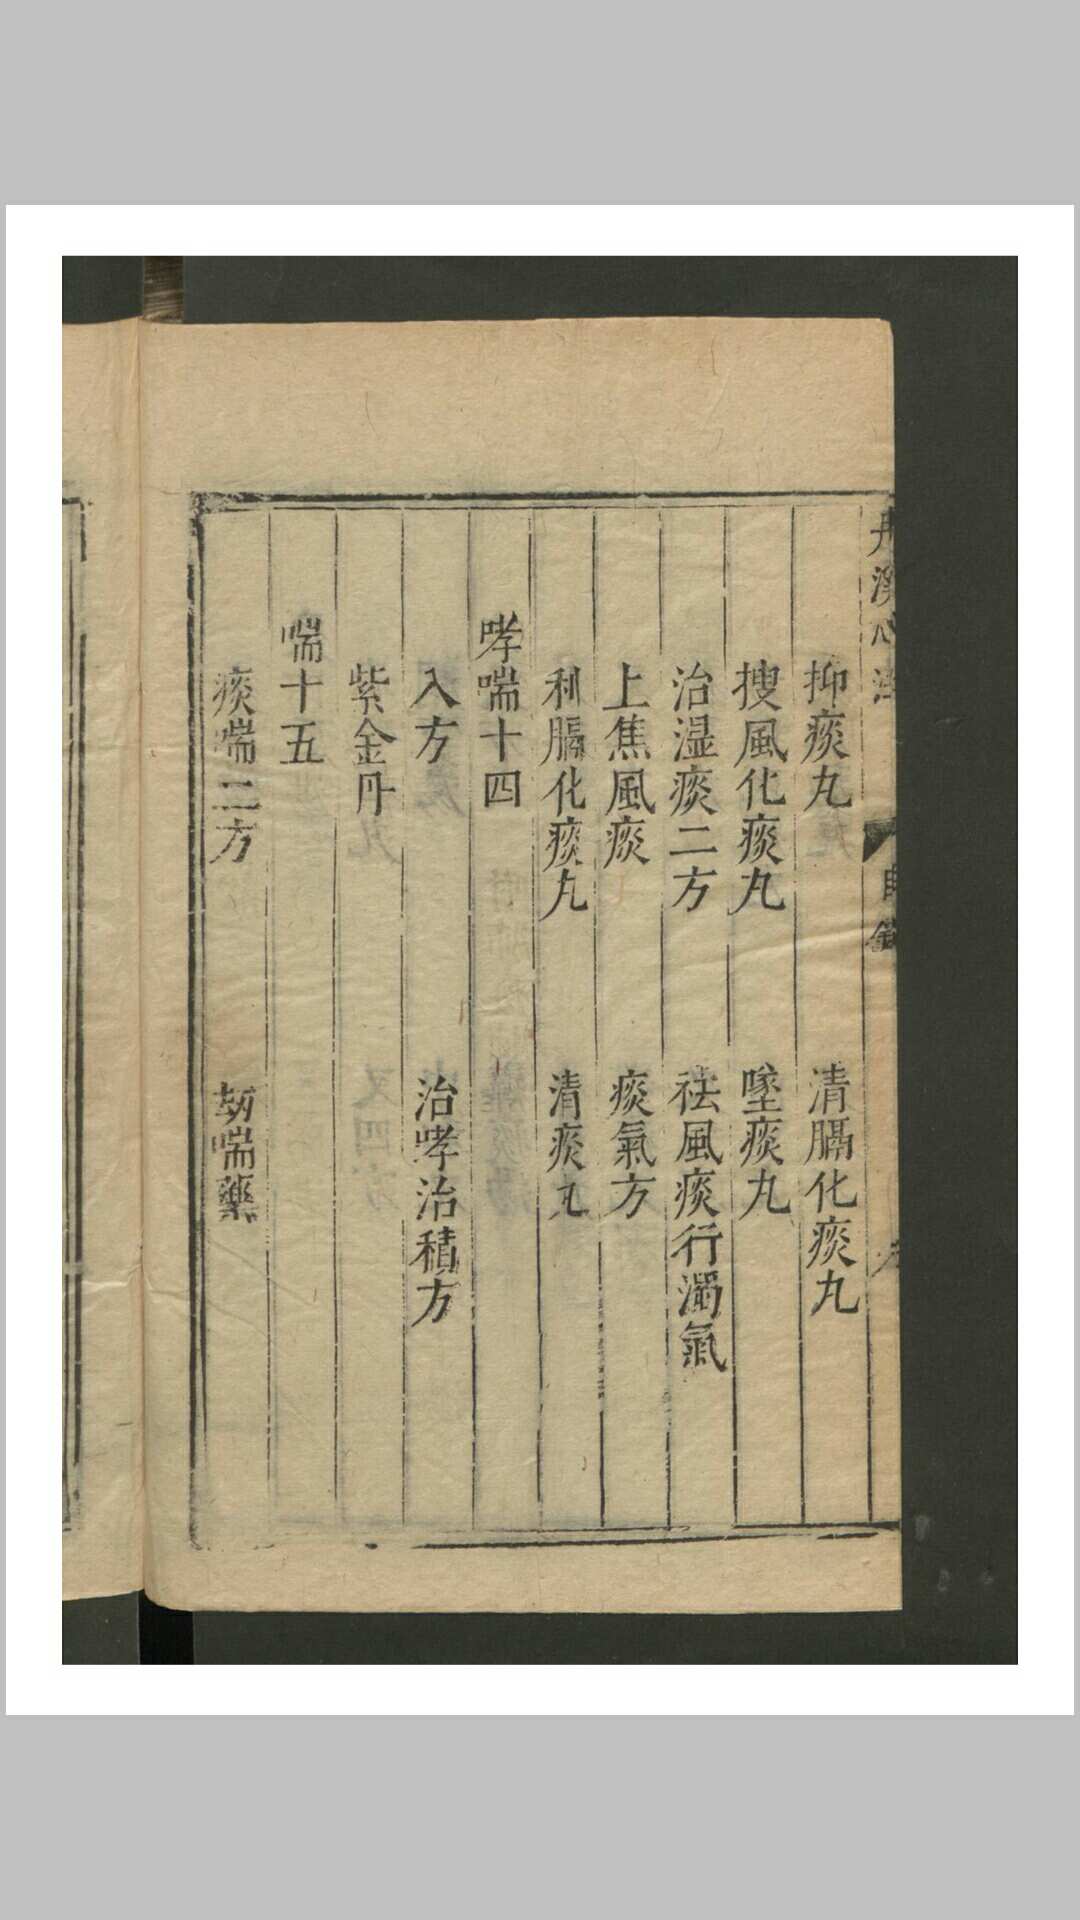 丹溪心法 目錄
抑痰丸 清膈化痰丸
搜風化痰丸 墜痰丸
治湿痰二方 祛風痰行濁氣
上焦風痰 痰氣方
利膈化痰丸 清痰丸
哮喘十四
入方 治哮治積方
紫金丹
喘十五
痰喘二方 劫喘藥